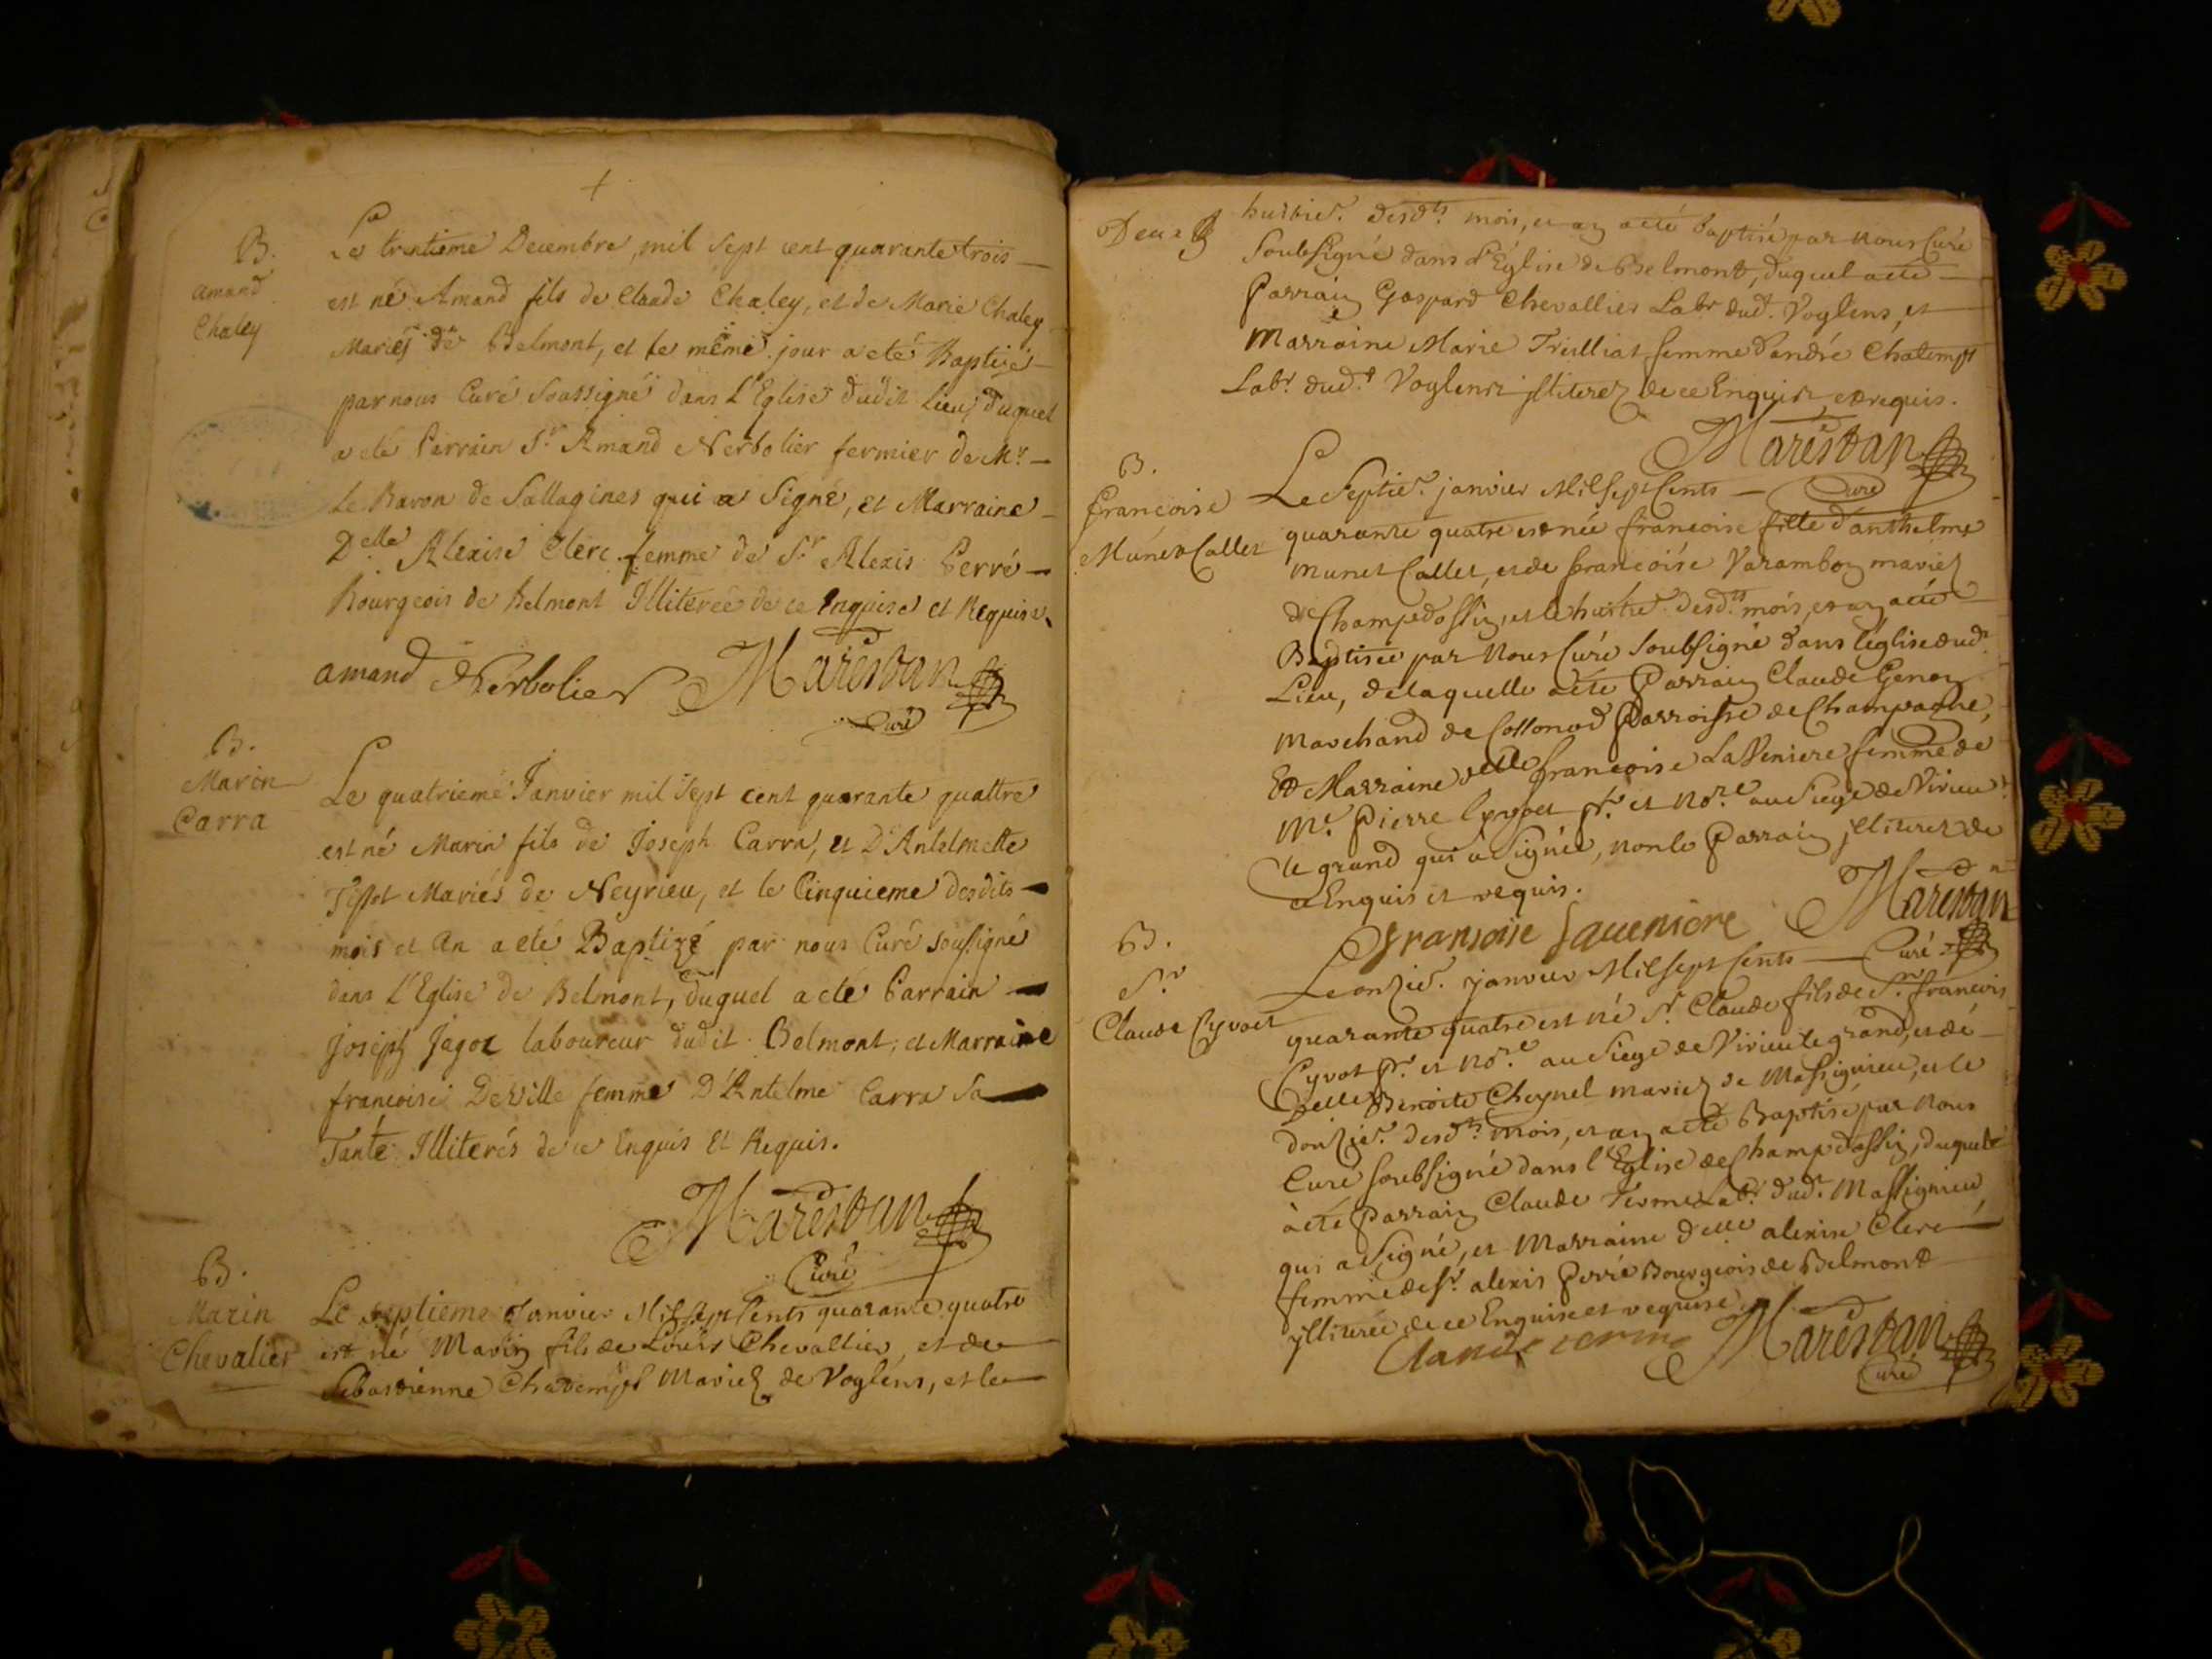 B.
Amand
Chaley
Le trentieme Decembre, mil sept cent quarante trois
est né Amand fils de Claude Chaley, et de Marie Chaley
Mariés de Belmont, et le même jour a eté Baptizé
par nous Curé Soussigné dans L'Eglise dudit Lieu, duquel
a eté Parrain Sr. Amand Nerbolier fermier de Mr.
le Baron de Sallagines qui a Signé, et Marraine
Delle Alexise Clerc femme de Sr. Alexis Perré
Bourgeois de Belmont Illiterée de ce Enquise et Requise.
amand Nerbolier Marestan
Curé
B.
Marin
Carra
Le quatrieme Janvier mil sept cent quarante quattre
est né Marin fils de Joseph Carra, et D'Antelmette
Tissot Mariés de Neyrieu, et le Cinquieme desdits
mois et an a eté Baptizé par nous Curé sousigné
dans L'Eglise de Belmont, duquel a eté Parrain
Joseph Jagot laboureur dudit Belmont, et Marraine
francoise Deville femme D'Antelme Carra Sa
Tante Illiterés de ce Enquis Et Requis.
Marestan
Curé
B.
Marin
Chevalier
Le septieme Janvier Mil sept Cents quarante quatre
est né Marin fils de Louis Chevallier, et de
Sebastienne Chatempt Mariez de Voglens, et le
huitie. desdts. mois, et an a eté baptisé par Nous Curé
Soubsigné dans L'Église de Belmont, duquel a eté
Parrain Gaspard Chevallier Labr dud. Voglens, et
Marraine Marie Trulliat femme d'andré Chatempt
Labr. dud.t Voglens illiterez de ce Enquis et requis.
Marestan
Curé
B.
francoise
Munet Callet
Le Septie. janvier Mil sept Cents
quarante quatre est née francoise fille d'anthelme
munet Callet, et de francoise Varambon mariez
de Champdossin, et le huitie. desdts. mois, et an a eté
Baptisée par Nous Curé Soubsigné dans l'église dud.
Lieu, de laquelle a eté Parrain Claude Genon
Marchand de Collonod Parroisse de Champagne,
Et Marraine delle francoise La Veniere femme de
Me. Pierre Cyvoct pr. et Nore. au Siege de Virieu
le grand qui a Signée, non le Parrain illiterez de
ce Enquis et requis.
fransoise laueniere Marestan
Curé
B.
Sr.
Claude Cyvoct
Le onzie. janvier Mil sept Cents
quarante quatre est né Sr. Claude fils de Sr. francois
Cyvot pr. et Nore. au Siege de Virieu le grand, et de
Delle Benoite Cheynel mariez de Massignieu, et le
douzie. desdts. mois, et an a eté Baptisé par Nous
Curé soubsigné dans l'Eglise de Champdossin, duquel
a eté Parrain Claude Terme Labr. dud. Massignieu,
qui a Signé, et Marraine delle alexise Clerc
femme de Sr. alexis Perré Bourgeois de Belmont
illiterée de ce Enquise et requise.
Claude terme Marestan
Curé